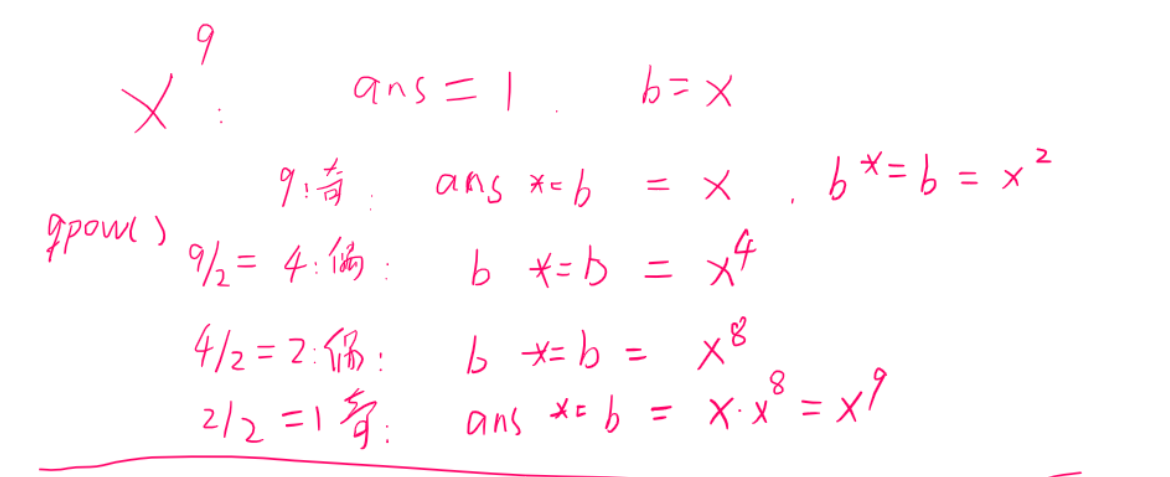 x⁹: ans = 1. b = x
9:奇: ans *= b = x. b *= b = x²
qpow()
9/2 = 4:偶: b *= b = x⁴
4/2 = 2:偶: b *= b = x⁸
2/2 = 1奇: ans *= b = x·x⁸ = x⁹